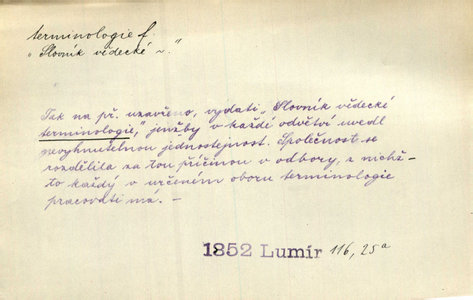 terminologie f.
„Slovník vědecké ~."
Tak na př. uzavřeno, vydati „Slovník vědecké
terminologie," jenžby v každé odvětví uvedl
nevyhnutelnou jednostejnost. Společnost se
rozdělila za tou příčinou v odbory, z nichž-
to každý v určeném oboru terminologie
pracovati má. –
1852 Lumír 116, 25a